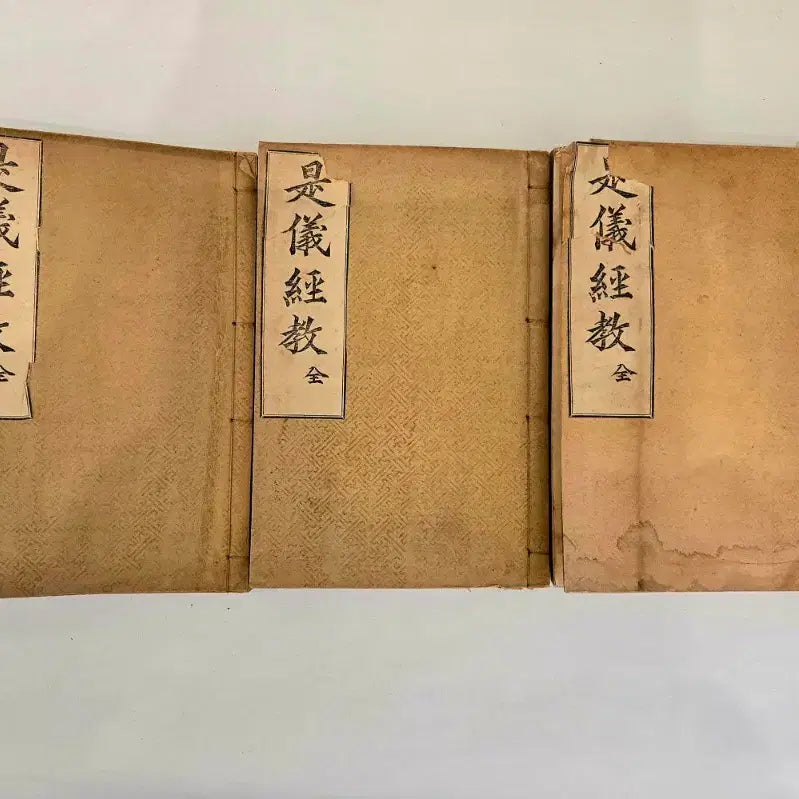 是儀經教 全
是儀經教 全
是儀經教 全